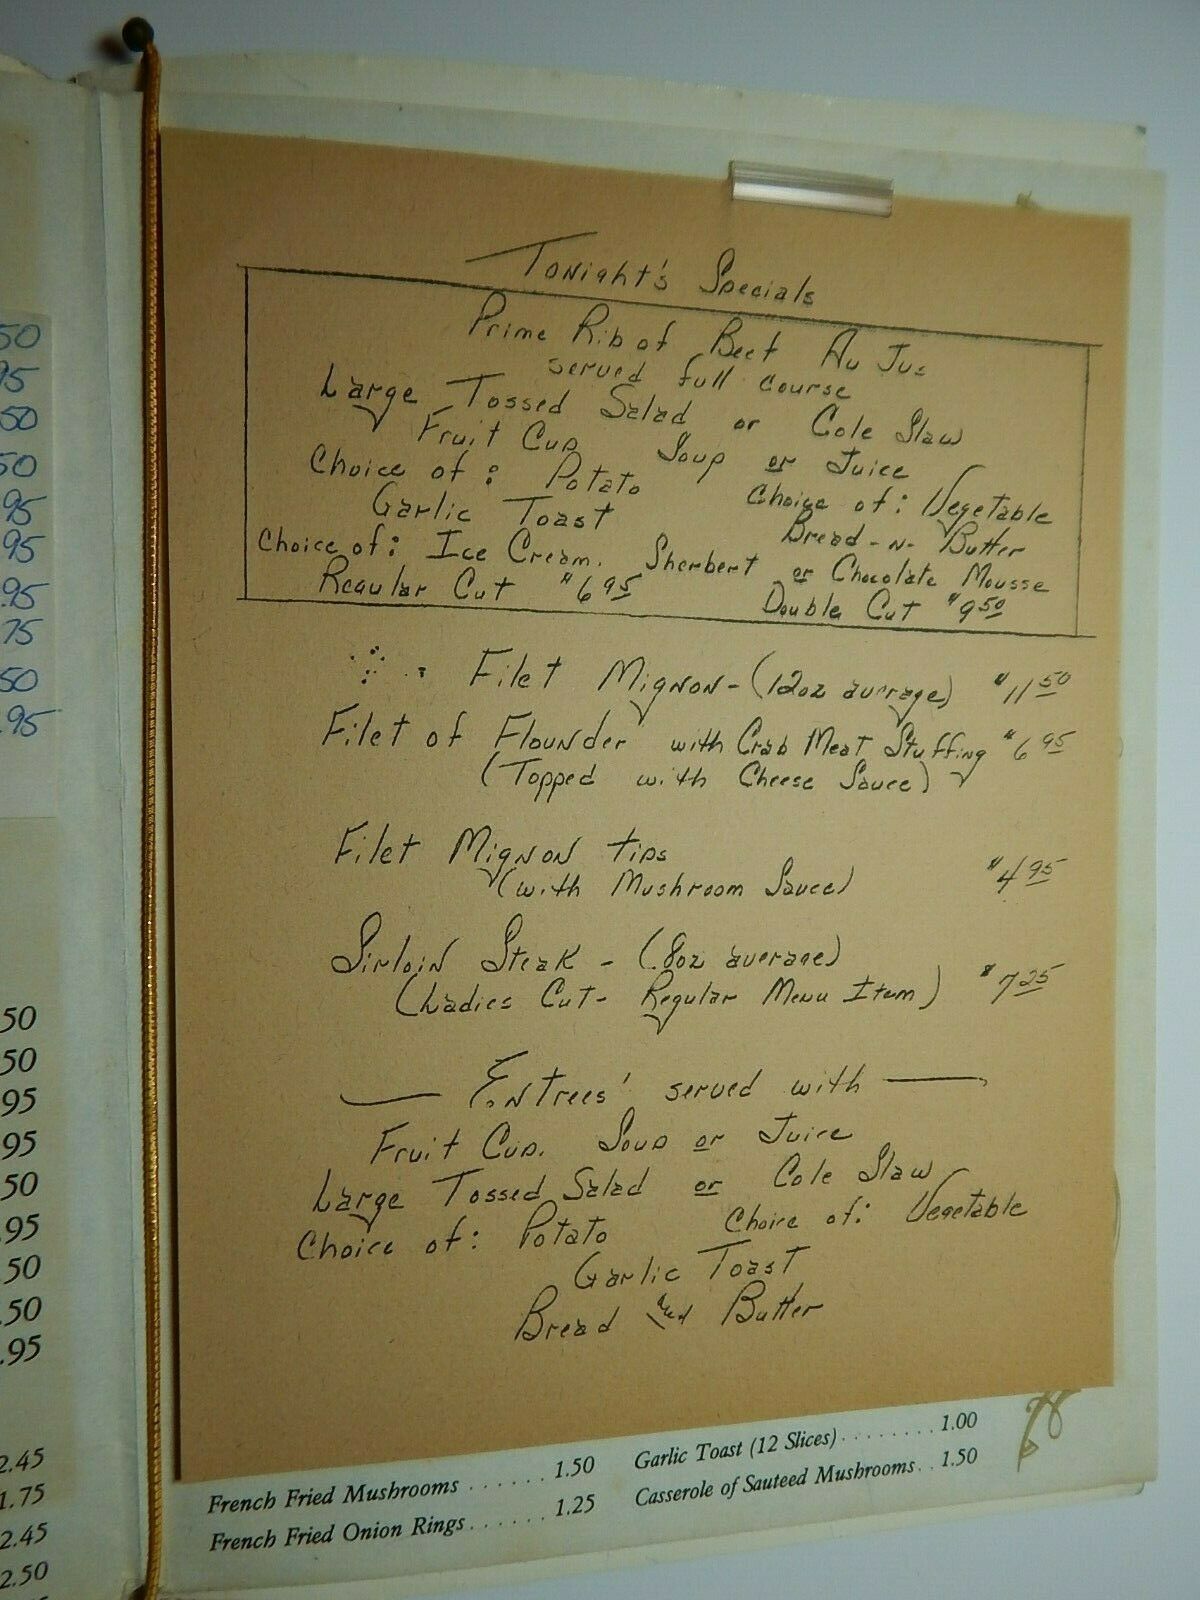 Tonight's Specials
Prime Rib of Beef Au Jus
served full course
Large Tossed Salad or Cole Slaw
Fruit Cup Soup or Juice
Choice of: Potato Choice of: Vegetable
Garlic Toast Bread-N-Butter
Choice of: Ice Cream. Sherbert or Chocolate Mousse
Regular Cut $6 95 Double Cut $9 50
Filet Mignon-(12oz average) $11 50
Filet of Flounder with Crab Meat Stuffing $6 95
(Topped with Cheese Sauce)
Filet Mignon tips
(with Mushroom Sauce) $4 95
Sirloin Steak - (8oz average)
(Ladies Cut- Regular Menu Item) $7 25
Entrees' served with
Fruit Cup. Soup or Juice
Large Tossed Salad or Cole Slaw
Choice of: Potato Choice of: Vegetable
Garlic Toast
Bread and Butter
French Fried Mushrooms ...... 1.50
French Fried Onion Rings ...... 1.25
Garlic Toast (12 Slices) ........ 1.00
Casserole of Sauteed Mushrooms .. 1.50
50
95
50
50
95
95
.95
75
50
.95
50
50
95
95
50
.95
50
.50
.95
2.45
1.75
2.45
2.50